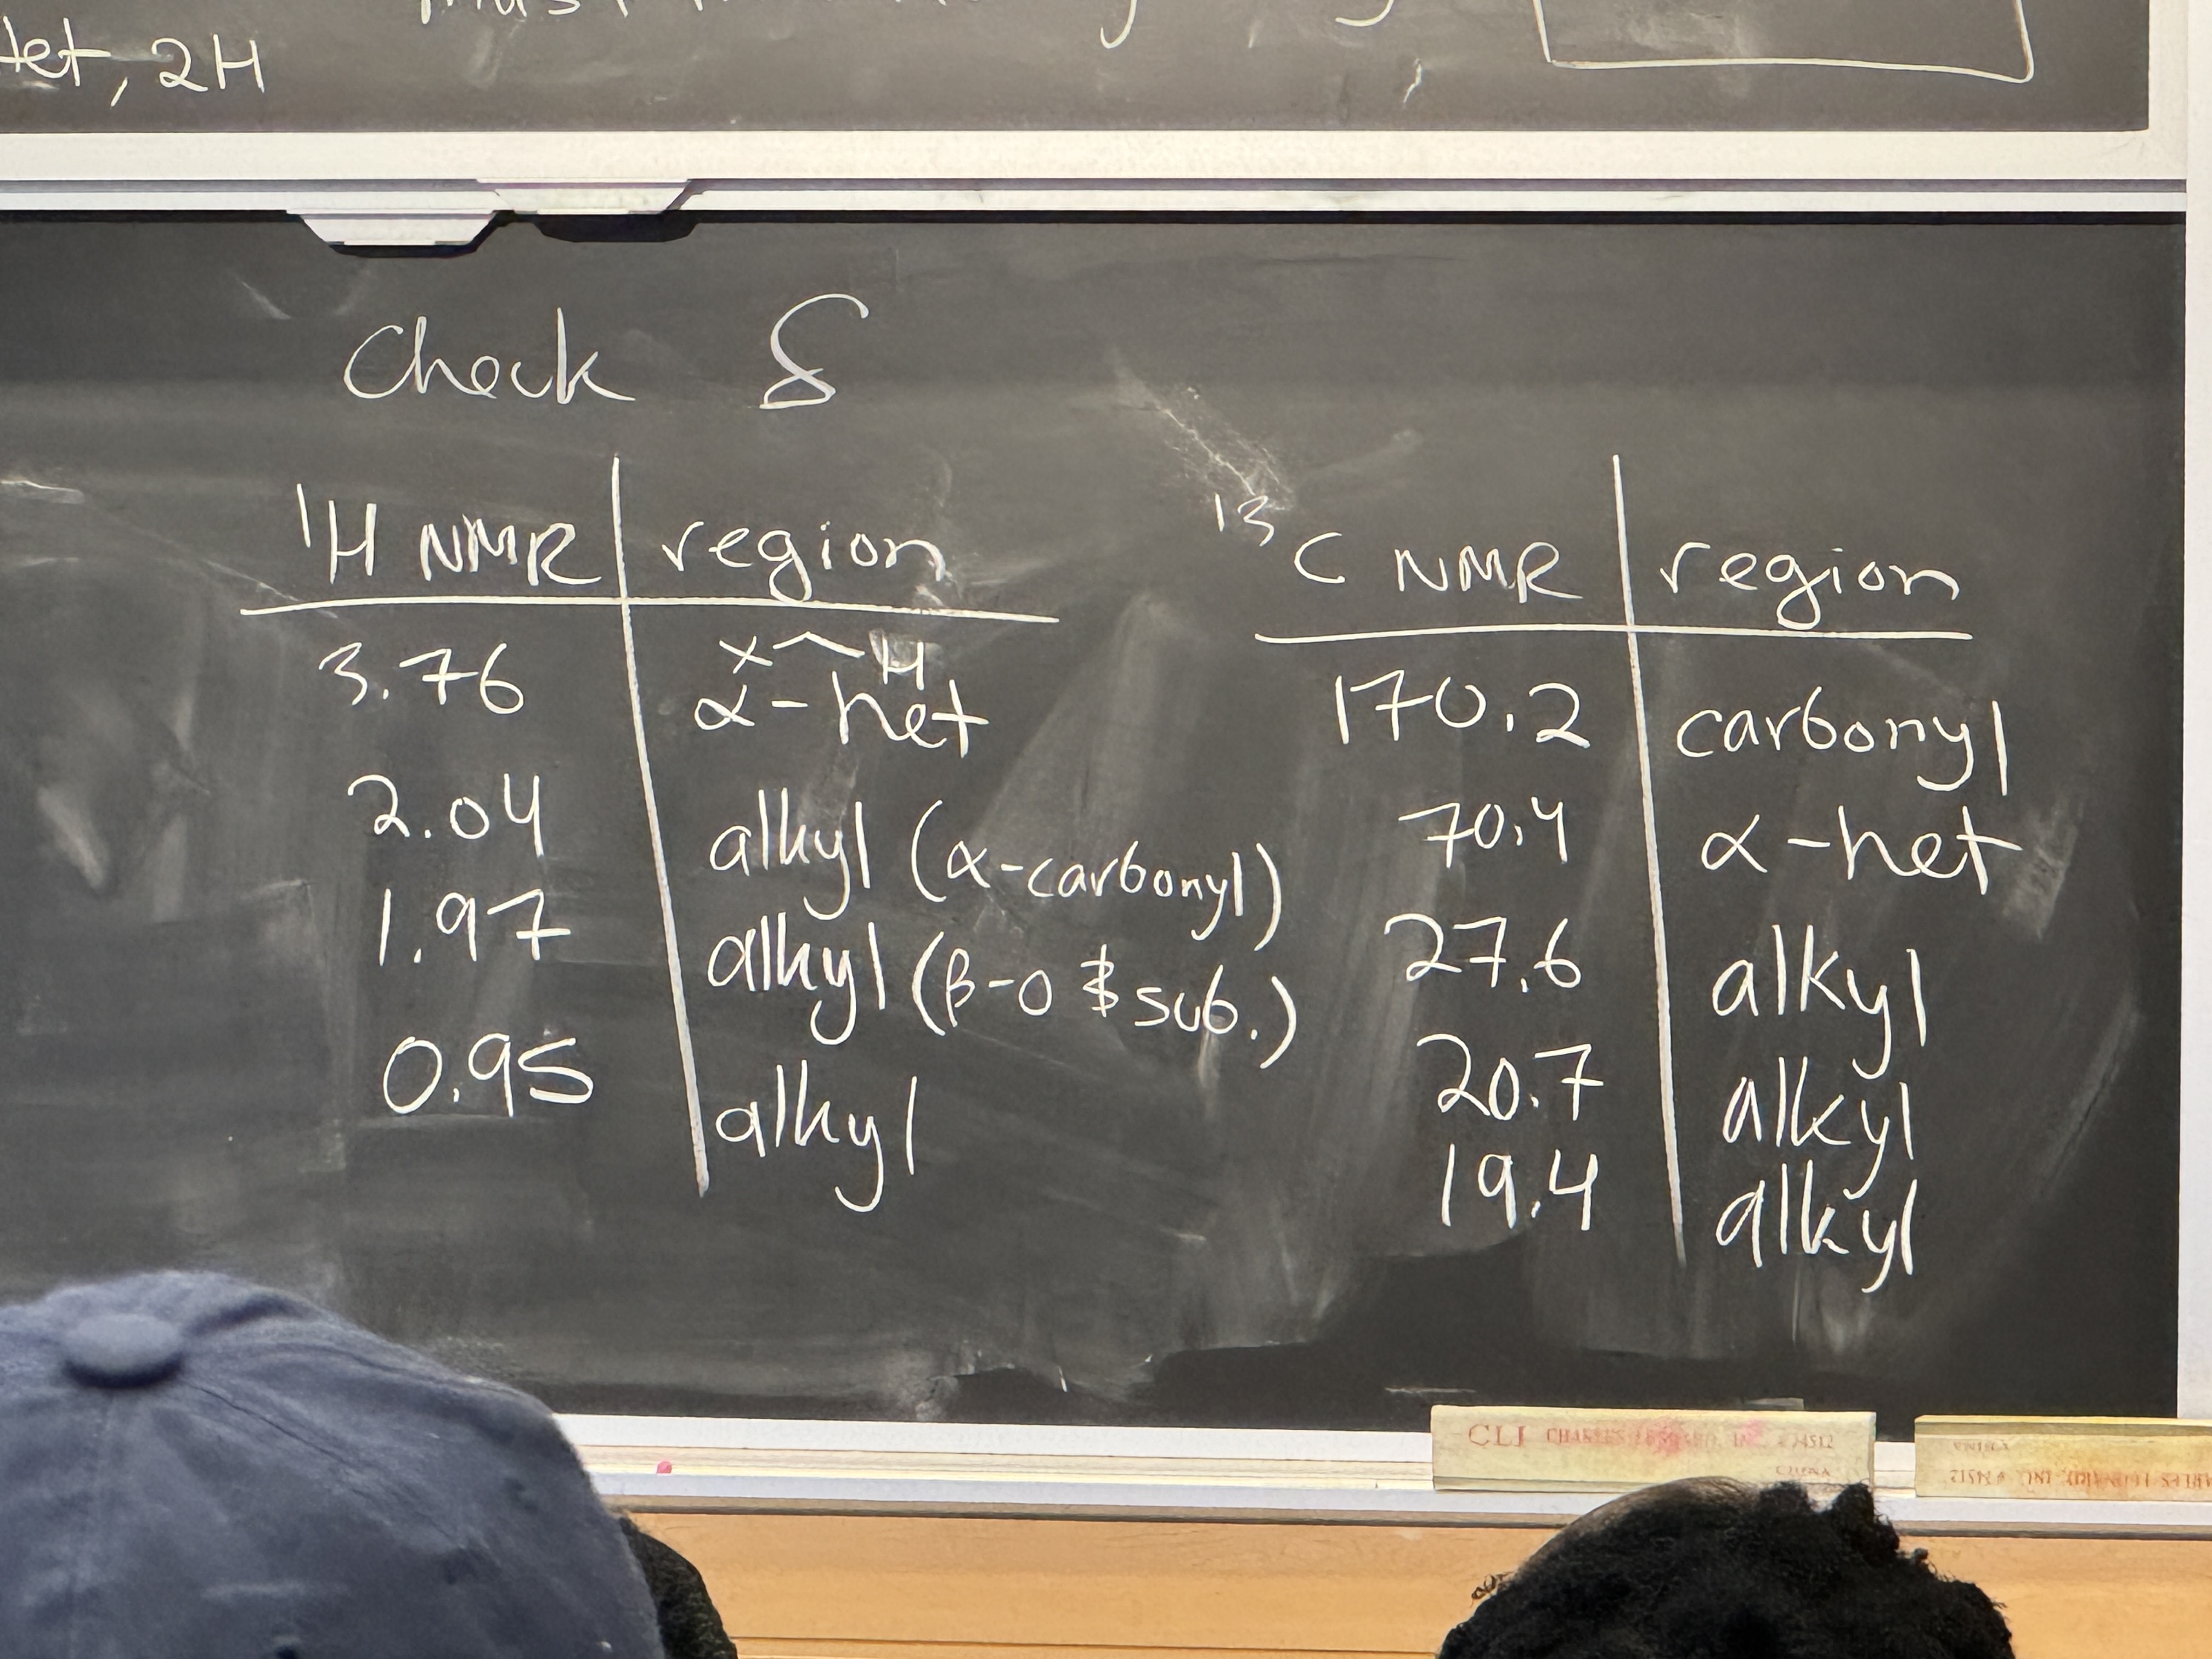 tet, 2H
Check δ
¹H NMR | region
3.76 | X H
α-het
2.04 | alkyl (α-carbonyl)
1.97 | alkyl (β-O & sub.)
0.95 | alkyl
¹³C NMR | region
170.2 | carbonyl
70.4 | α-het
27.6 | alkyl
20.7 | alkyl
19.4 | alkyl
CLI CHARLES LEONARD, INC. #74512
CHINA